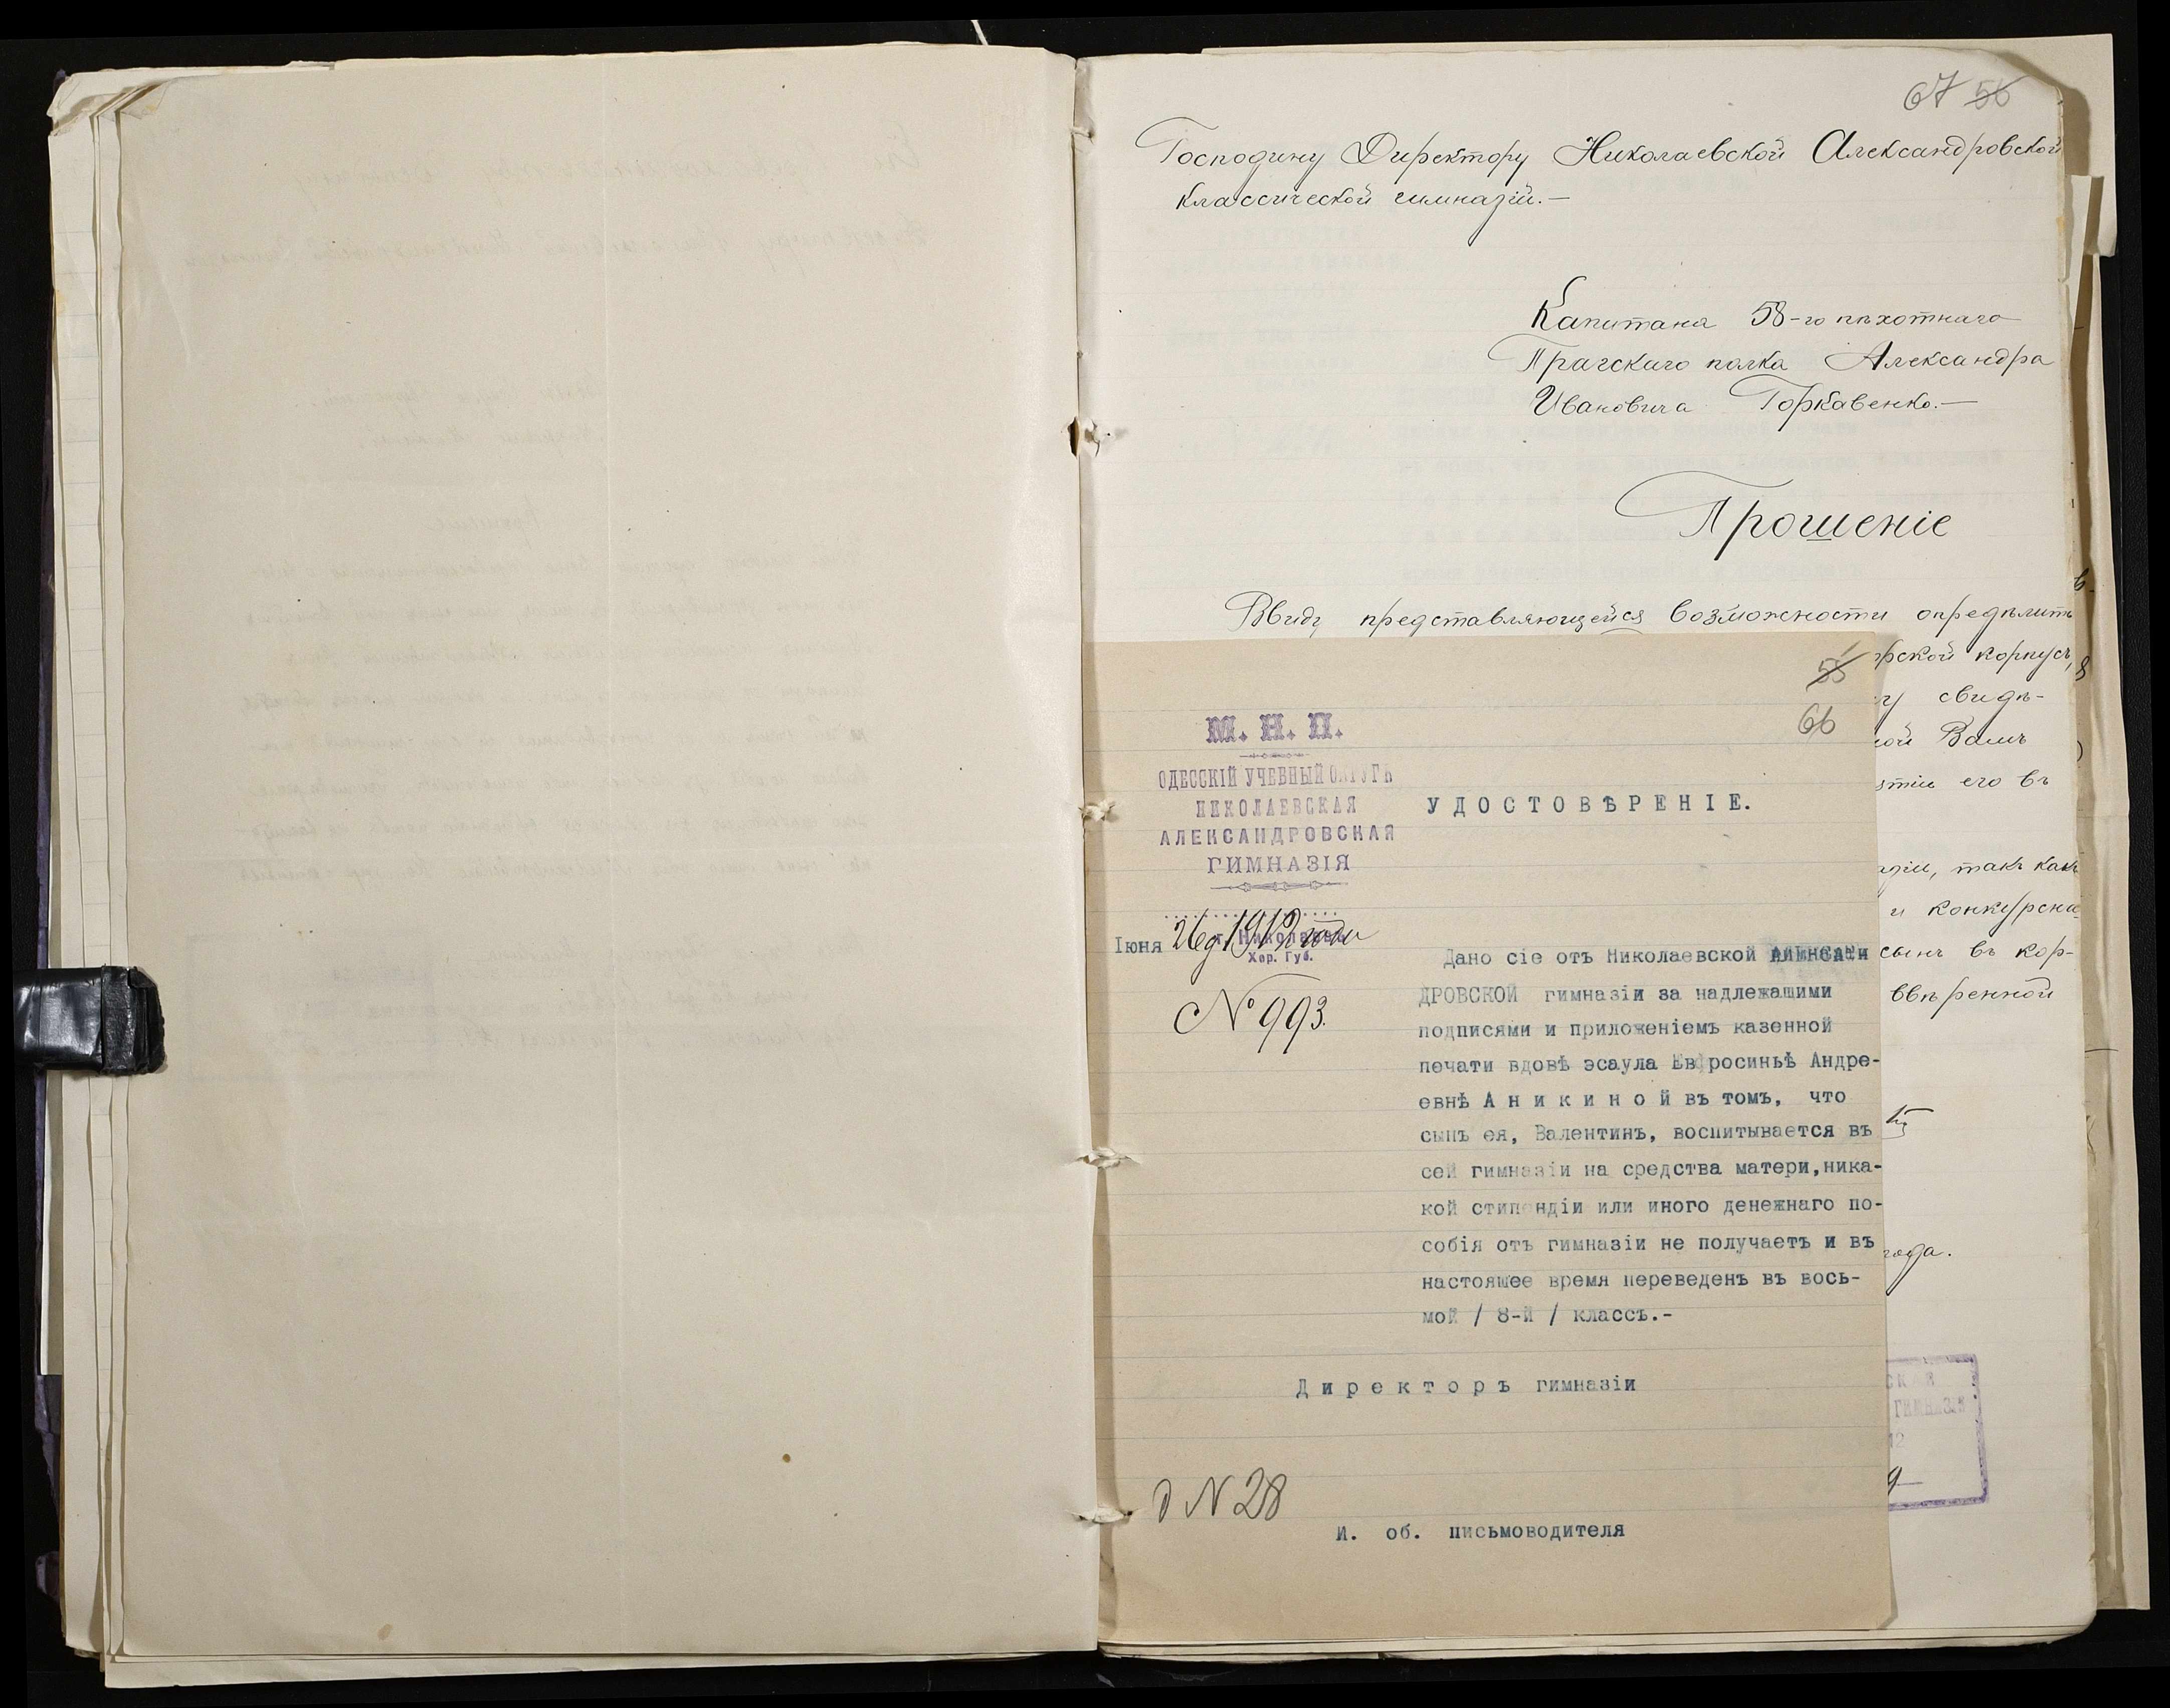 67 56
Господину Директору Николаевской Александровской
классической гимназіи.—
Капитана 58-го пѣхотнаго
Прагскаго полка Александра
Ивановича Горкавенко.—
Прошеніе
Ввиду представляющейся возможности опредѣлить
рской корпусъ,
свидѣ-
ной Вамъ
стіи его въ
азіи, такъ какъ
и конкурсна-
сынъ въ кор-
ввѣренной
года.
55
66
М. Н. П.
ОДЕССКІЙ УЧЕБНЫЙ ОКРУГЪ
НИКОЛАЕВСКАЯ
АЛЕКСАНДРОВСКАЯ
ГИМНАЗІЯ
УДОСТОВѢРЕНІЕ.
Іюня 26 д. 1912 года
г. Николаевъ
Хер. Губ.
№ 993.
Дано сіе отъ Николаевской АЛЕКСАН
ДРОВСКОЙ гимназіи за надлежащими
подписями и приложеніемъ казенной
печати вдовѣ эсаула Евфросиньѣ Андре-
евнѣ Аникиной въ томъ, что
сынъ ея, Валентинъ, воспитывается въ
сей гимназіи на средства матери,ника-
кой стипендіи или иного денежнаго по-
собія отъ гимназіи не получаетъ и въ
настоящее время переведенъ въ вось-
мой / 8-й / классъ.-
Директоръ гимназіи
д N 28
И. об. письмоводителя
СКОЙ
ГИМНАЗІИ
12